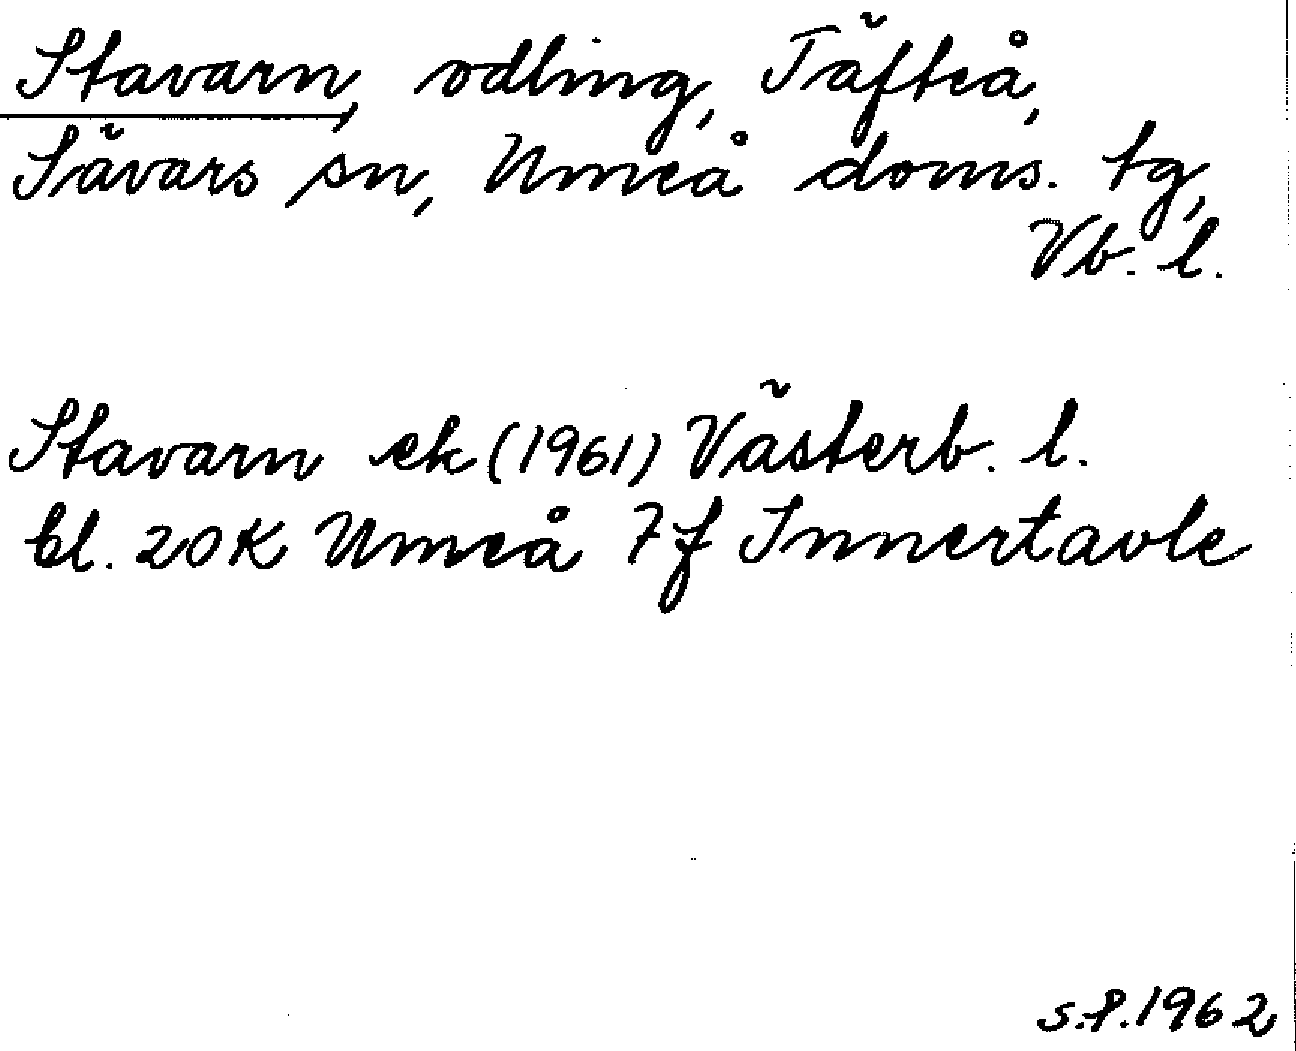 Stavarn, odling, Täfteå,
Sävars sn, Umeå doms. tg,
Vb. l.
Stavarn ek (1961) Västerb. l.
bl. 20K Umeå 7f Innertavle
s.f. 1962